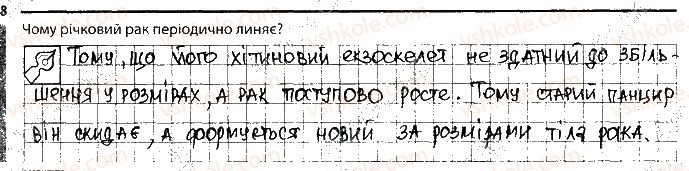 8
Чому річковий рак періодично линяє?
Тому, що його хітиновий екзоскелет не здатний до збіль-
шення у розмірах, а рак поступово росте. Тому старий панцир
він скидає, а формується новий за розмірами тіла рака.